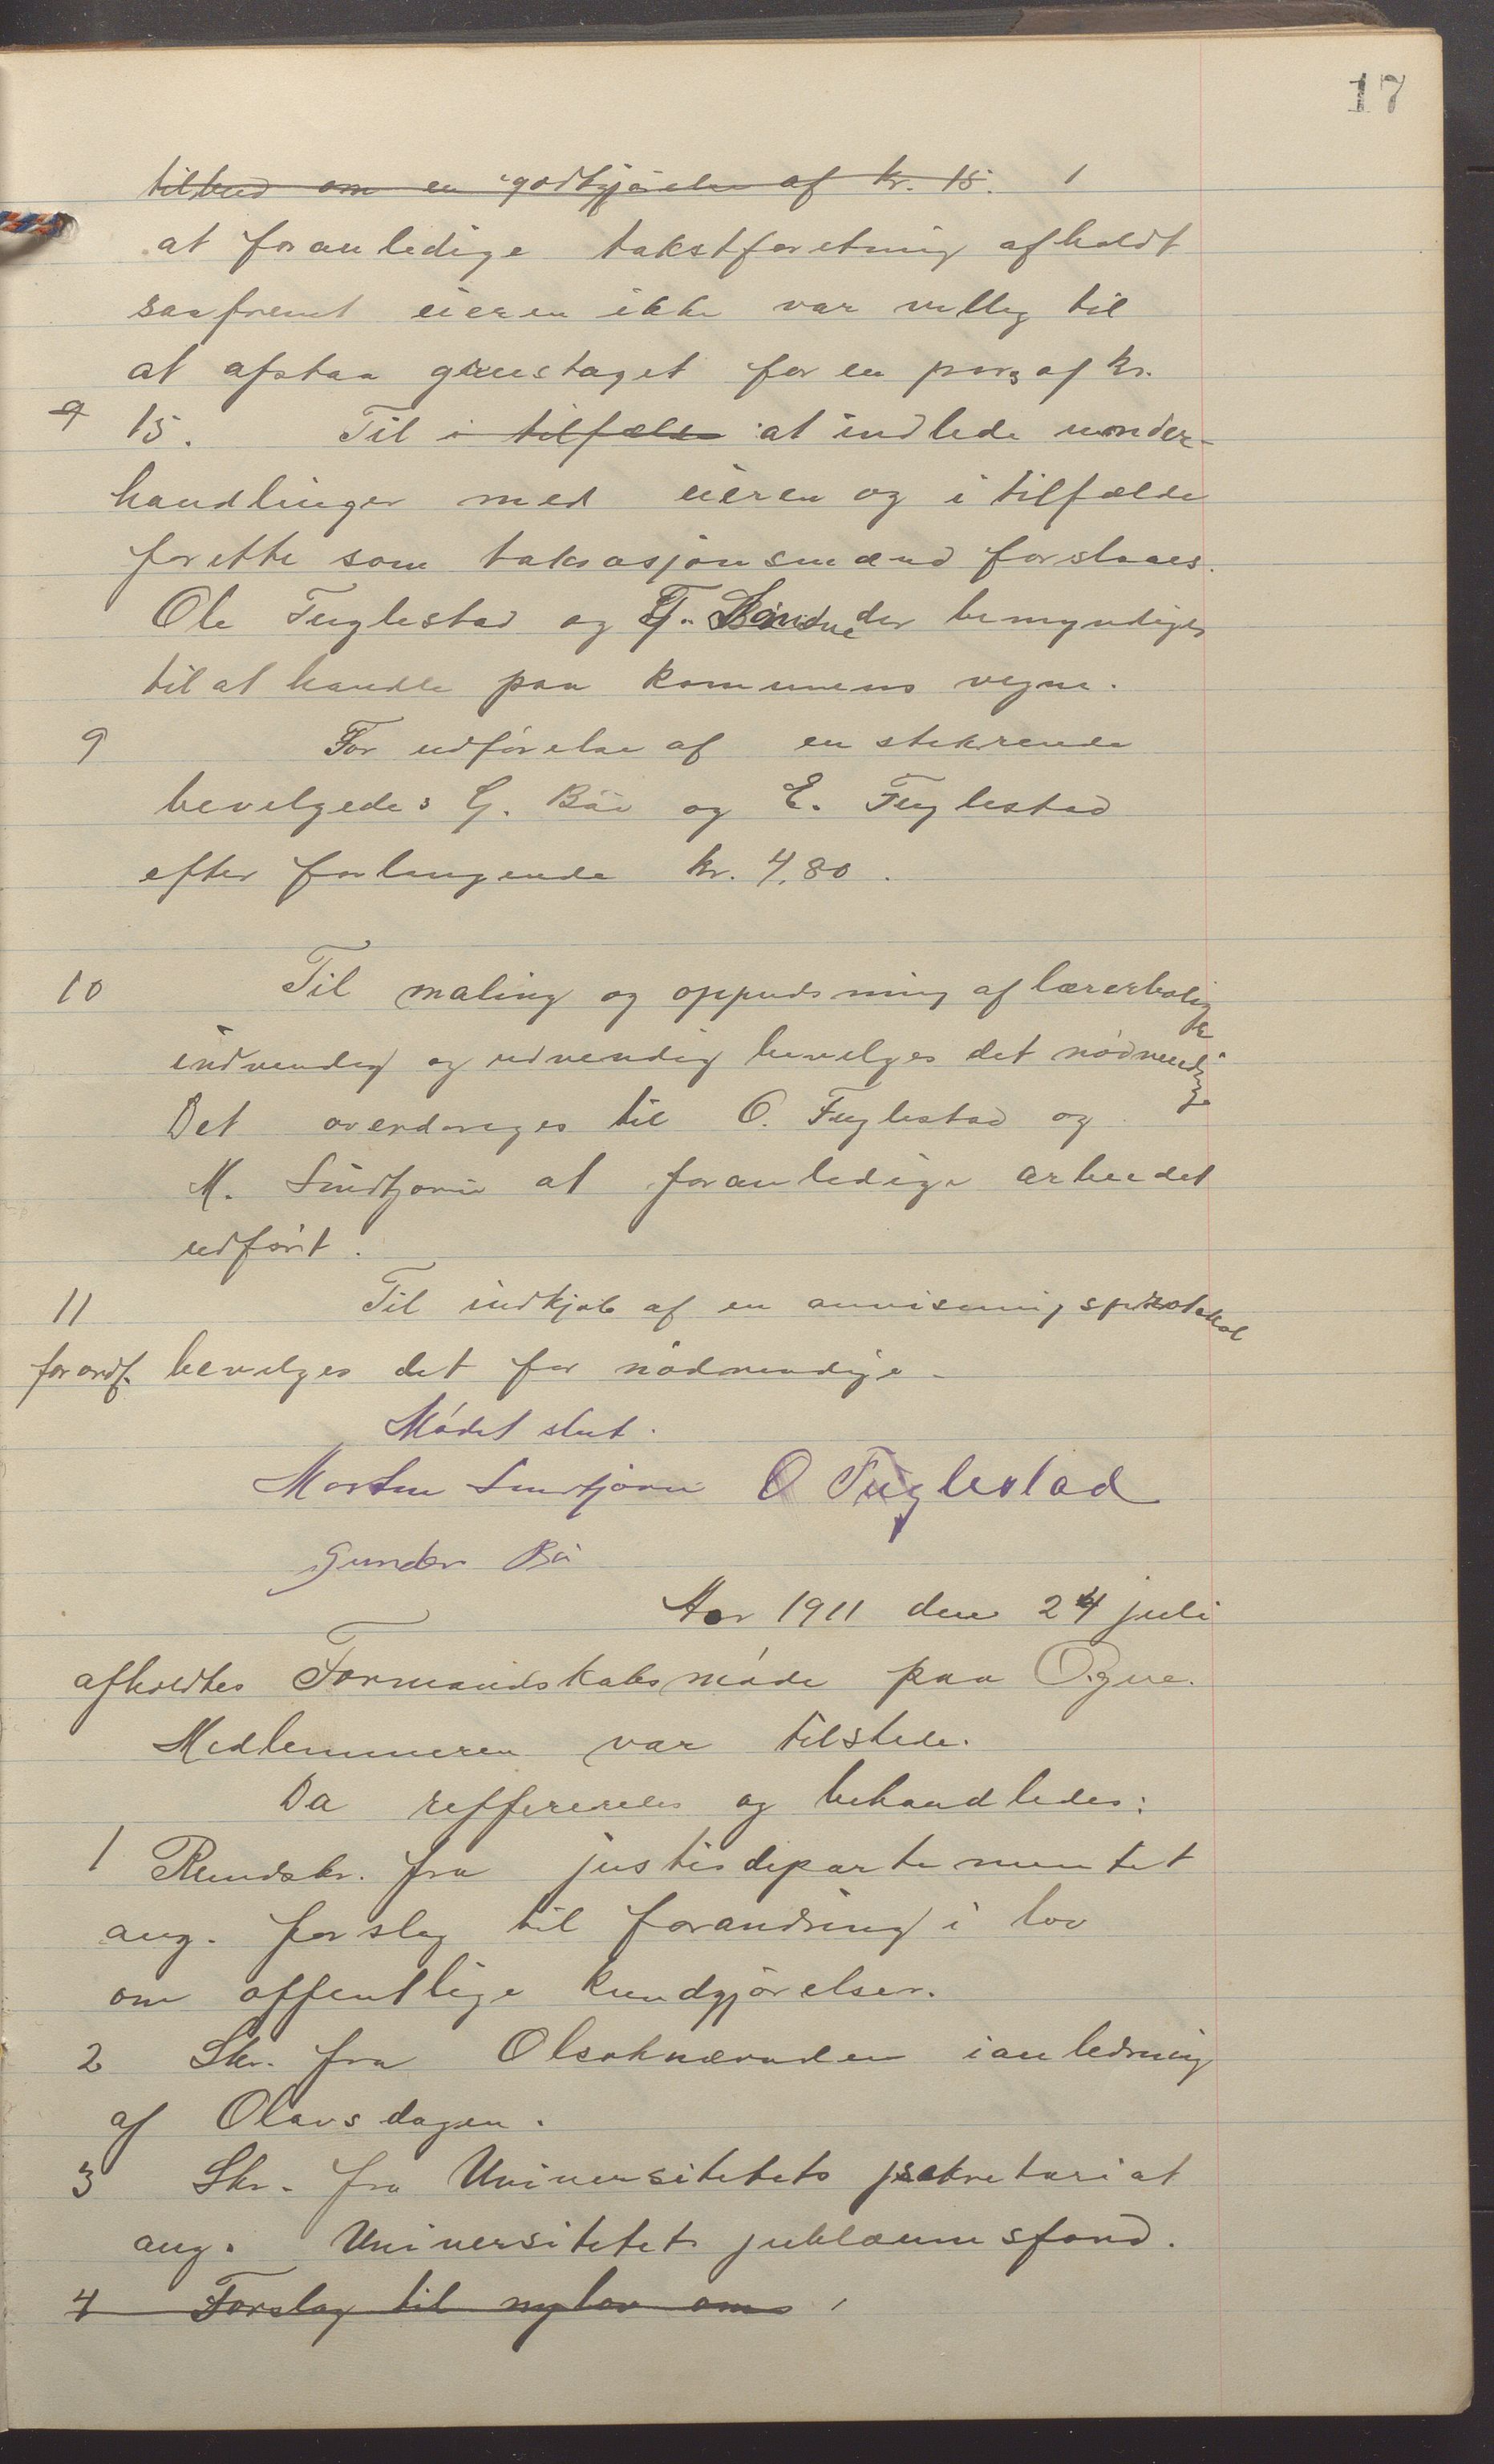 17
tilbud om en godtgjørelse af kr. 15.
at foranledige takstforetning afholdt
saafremt eieren ikke var villig til
at afstaa grustaget for en pris af kr.
9 15. Til i tilfælde at indlede under-
handlinger med eieren og i tilfælde
forette som taksasjonsmænd forslaaes.
Ole Fuglestad og der bemyndiges
til at handle paa kommunens vegne.
9 For udførelse af en stikrende
bevilgedes G. Bø og E. Fuglestad
efter forlangende kr. 4,80.
10 Til maling og oppudsning af lærerbolig
indvendig og udvendig bevilges det nødvendige
Det overdrages til O. Fuglestad og
M. Sirdtjorn at foranledige arbeidet
udført.
11 Til indkjøb af en anvisningsprotokol
for ordf. bevilges det for nødvendige
Mødet slut.
Morten O Fuglestad
Gunder Bø
Aar 1911 den 24 juli
afholdtes Formandskabsmøde paa Ogne.
Medlemmeren var tilstede.
Da refferertes og behandledes:
1 Rundskr. fra justisdepartementet
ang. forslag til forandring i lov
om offentlige kundgjørelser.
2 Skr. fra Olsoknævnden ianledning
af Olavsdagen.
3 Skr. fra Universitetets sekretariat
ang. Universitets jubilæumsfond.
4 Forslag til ny lov om